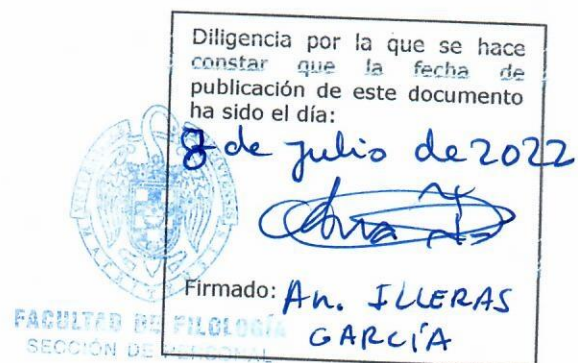 Diligencia por la que se hace
constar que la fecha de
publicación de este documento
ha sido el día:
de julio de 2022
Firmado: An. ILLERAS
GARCÍA
FACULTAD DE FILOLOGÍA
SECCIÓN DE PERSONAL